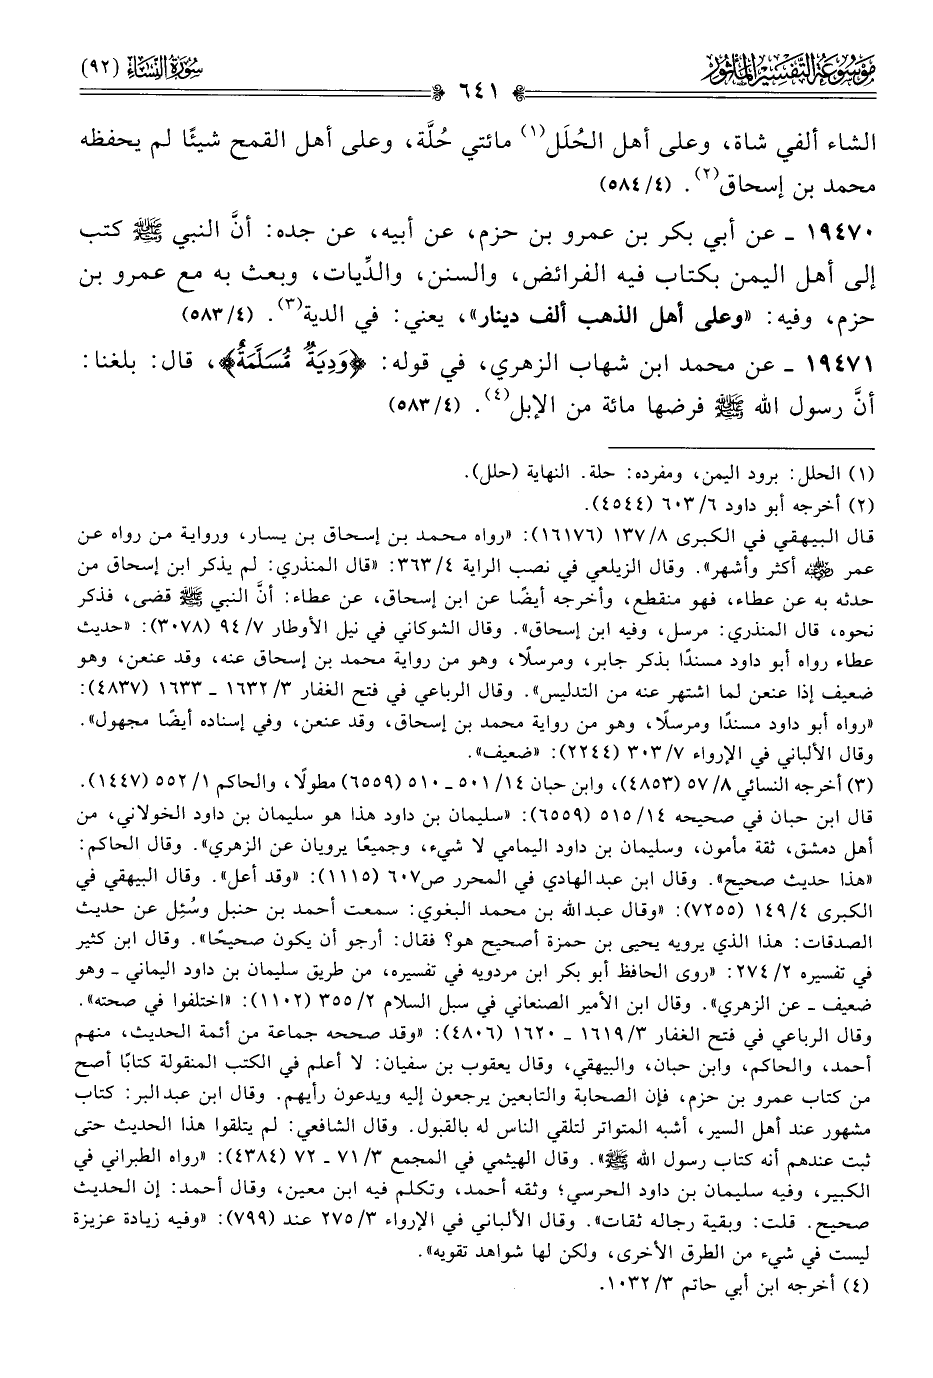 موسوعة التفسير المأثور
سورة النساء (٩٢)
٦٤١
الشاء ألفي شاة، وعلى أهل الحُلَل(١) مائتي حُلَّة، وعلى أهل القمح شيئًا لم يحفظه
محمد بن إسحاق(٢). (٥٨٤/٤)
١٩٤٧٠ ـ عن أبي بكر بن عمرو بن حزم، عن أبيه، عن جده: أنَّ النبي ﷺ كتب
إلى أهل اليمن بكتاب فيه الفرائض، والسنن، والدِّيات، وبعث به مع عمرو بن
حزم، وفيه: «وعلى أهل الذهب ألف دينار»، يعني: في الدية(٣). (٥٨٣/٤)
١٩٤٧١ ـ عن محمد ابن شهاب الزهري، في قوله: ﴿وَدِيَةٌ مُّسَلَّمَةٌ﴾، قال: بلغنا:
أنَّ رسول الله ﷺ فرضها مائة من الإبل(٤). (٥٨٣/٤)
(١) الحلل: برود اليمن، ومفرده: حلة. النهاية (حلل).
(٢) أخرجه أبو داود ٦/ ٦٠٣ (٤٥٤٤).
قال البيهقي في الكبرى ٨/ ١٣٧ (١٦١٧٦): «رواه محمد بن إسحاق بن يسار، ورواية من رواه عن
عمر رضي الله عنه أكثر وأشهر». وقال الزيلعي في نصب الراية ٤/ ٣٦٣: «قال المنذري: لم يذكر ابن إسحاق من
حدثه به عن عطاء، فهو منقطع، وأخرجه أيضًا عن ابن إسحاق، عن عطاء: أنَّ النبي ﷺ قضى، فذكر
نحوه، قال المنذري: مرسل، وفيه ابن إسحاق». وقال الشوكاني في نيل الأوطار ٧/ ٩٤ (٣٠٧٨): «حديث
عطاء رواه أبو داود مسندًا بذكر جابر، ومرسلًا، وهو من رواية محمد بن إسحاق عنه، وقد عنعن، وهو
ضعيف إذا عنعن لما اشتهر عنه من التدليس». وقال الرباعي في فتح الغفار ٣/ ١٦٣٢ ـ ١٦٣٣ (٤٨٣٧):
«رواه أبو داود مسندًا ومرسلًا، وهو من رواية محمد بن إسحاق، وقد عنعن، وفي إسناده أيضًا مجهول».
وقال الألباني في الإرواء ٧/ ٣٠٣ (٢٢٤٤): «ضعيف».
(٣) أخرجه النسائي ٨/ ٥٧ (٤٨٥٣)، وابن حبان ١٤/ ٥٠١ ـ ٥١٠ (٦٥٥٩) مطولًا، والحاكم ١/ ٥٥٢ (١٤٤٧).
قال ابن حبان في صحيحه ١٤/ ٥١٥ (٦٥٥٩): «سليمان بن داود هذا هو سليمان بن داود الخولاني، من
أهل دمشق، ثقة مأمون، وسليمان بن داود اليمامي لا شيء، وجميعًا يرويان عن الزهري». وقال الحاكم:
«هذا حديث صحيح». وقال ابن عبدالهادي في المحرر ص٦٠٧ (١١١٥): «وقد أعل». وقال البيهقي في
الكبرى ٤/ ١٤٩ (٧٢٥٥): «وقال عبدالله بن محمد البغوي: سمعت أحمد بن حنبل وسُئِل عن حديث
الصدقات: هذا الذي يرويه يحيى بن حمزة أصحيح هو؟ فقال: أرجو أن يكون صحيحًا». وقال ابن كثير
في تفسيره ٢/ ٢٧٤: «روى الحافظ أبو بكر ابن مردويه في تفسيره، من طريق سليمان بن داود اليماني ـ وهو
ضعيف ـ عن الزهري». وقال ابن الأمير الصنعاني في سبل السلام ٢/ ٣٥٥ (١١٠٢): «اختلفوا في صحته».
وقال الرباعي في فتح الغفار ٣/ ١٦١٩ ـ ١٦٢٠ (٤٨٠٦): «وقد صححه جماعة من أئمة الحديث، منهم
أحمد، والحاكم، وابن حبان، والبيهقي، وقال يعقوب بن سفيان: لا أعلم في الكتب المنقولة كتابًا أصح
من كتاب عمرو بن حزم، فإن الصحابة والتابعين يرجعون إليه ويدعون رأيهم. وقال ابن عبدالبر: كتاب
مشهور عند أهل السير، أشبه المتواتر لتلقي الناس له بالقبول. وقال الشافعي: لم يتلقوا هذا الحديث حتى
ثبت عندهم أنه كتاب رسول الله ﷺ». وقال الهيثمي في المجمع ٣/ ٧١ ـ ٧٢ (٤٣٨٤): «رواه الطبراني في
الكبير، وفيه سليمان بن داود الحرسي؛ وثقه أحمد، وتكلم فيه ابن معين، وقال أحمد: إن الحديث
صحيح. قلت: وبقية رجاله ثقات». وقال الألباني في الإرواء ٣/ ٢٧٥ عند (٧٩٩): «وفيه زيادة عزيزة
ليست في شيء من الطرق الأخرى، ولكن لها شواهد تقويه».
(٤) أخرجه ابن أبي حاتم ٣/ ١٠٣٢.